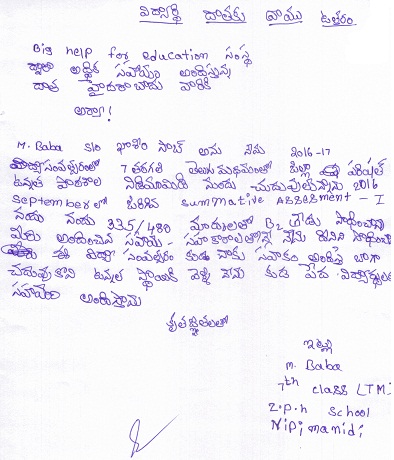 విద్యార్థి దాతకు వ్రాయు ఉత్తరం
Big help for education సంస్థ
ద్వారా ఆర్థిక సహాయం అందిస్తున్న
దాత హైదరాబాదు వారికి
అయ్యా!
M. Baba S/o ఖాశిం సాబ్ అను నేను 2016-17
విద్యాసంవత్సరంలో 7 తరగతి తెలుగు మీడియంలో జిల్లా పరిషత్
ఉన్నత పాఠశాల నిడిమామిడి నందు చదువుచున్నాను 2016
September లో జరిగిన Summative Assessment - I
నందు 335/480 మార్కులతో B2 గ్రేడు సాధించాను
మీరు అందించిన సహాయ సహకారాలతోనే నేను దీనిని సాధించాను
ఈ విద్యా సంవత్సరం కూడా నాకు సహకారం అందిస్తే బాగా
చదువుకొని ఉన్నత స్థాయికి వెళ్ళి నేను కూడ పేద విద్యార్థులకు
సహాయం అందిస్తాను
కృతజ్ఞతలతో
ఇట్లు
M. Baba
7th class (TM)
Z.P.H School
Nidimamidi